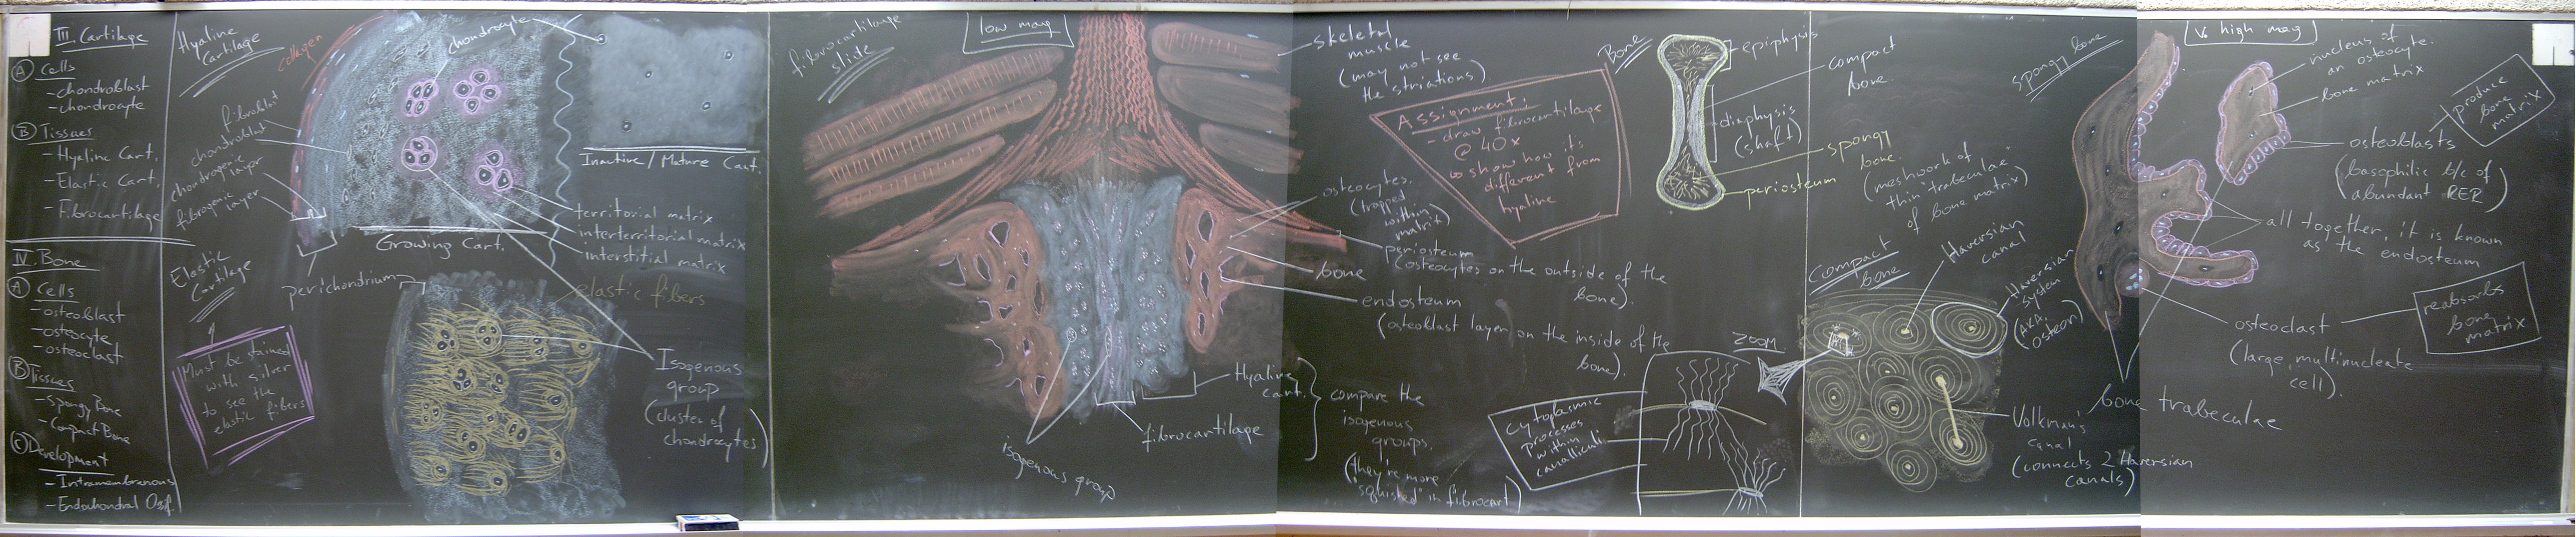 III. Cartilage
Ⓐ Cells
- chondroblast
- chondrocyte
Ⓑ Tissues
- Hyaline Cart.
- Elastic Cart.
- Fibrocartilage
IV. Bone
Ⓐ Cells
- osteoblast
- osteocyte
- osteoclast
Ⓑ Tissues
- Spongy Bone
- Compact Bone
Ⓒ Development
- Intramembranous
- Endochondral Ossif.
Hyaline
Cartilage
collagen
chondrocyte
fibroblast
chondroblast
chondrogenic layer
fibrogenic layer
perichondrium
Growing Cart.
Inactive / Mature Cart.
territorial matrix
interterritorial matrix
interstitial matrix
Elastic
Cartilage
Must be stained
with silver
to see the
elastic fibers
elastic fibers
Isogenous
group
(cluster of
chondrocytes)
fibrocartilage
slide
low mag
skeletal
muscle
(may not see
the striations)
Assignment:
- draw fibrocartilage
@ 40x
show how its
different from
hyaline
osteocytes.
(trapped
within
matrix)
periosteum
(osteocytes on the outside of the
bone).
bone
endosteum
(osteoblast layer on the inside of the
bone).
Hyaline
cart.
fibrocartilage
isogenous group
compare the
isogenous
groups.
(they're more
"squished" in fibrocart)
Bone
epiphysis
compact
bone.
diaphysis
(shaft)
spongy
bone.
(meshwork of
thin "trabeculae"
of bone matrix)
periosteum
Compact
bone
Haversian
canal
Haversian
System
(A.K.A.
Osteon)
ZOOM
Cytoplasmic
processes
within
canalliculi
Volkman's
canal
(connects 2 Haversian
canals)
spongy bone
Vs high mag
nucleus of
an osteocyte.
bone matrix
produce
bone
matrix
osteoblasts
(basophilic b/c of
abundant RER)
all together, it is known
as the endosteum
osteoclast
(large, multinucleate
cell).
reabsorbs
bone
matrix
bone trabeculae